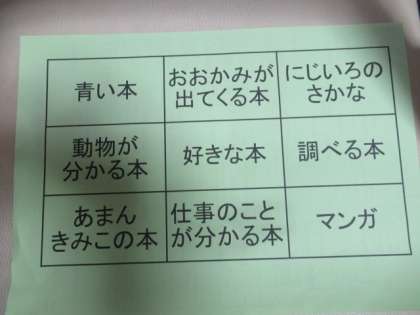 青い本
おおかみが
出てくる本
にじいろの
さかな
動物が
分かる本
好きな本
調べる本
あまん
きみこの本
仕事のこと
が分かる本
マンガ